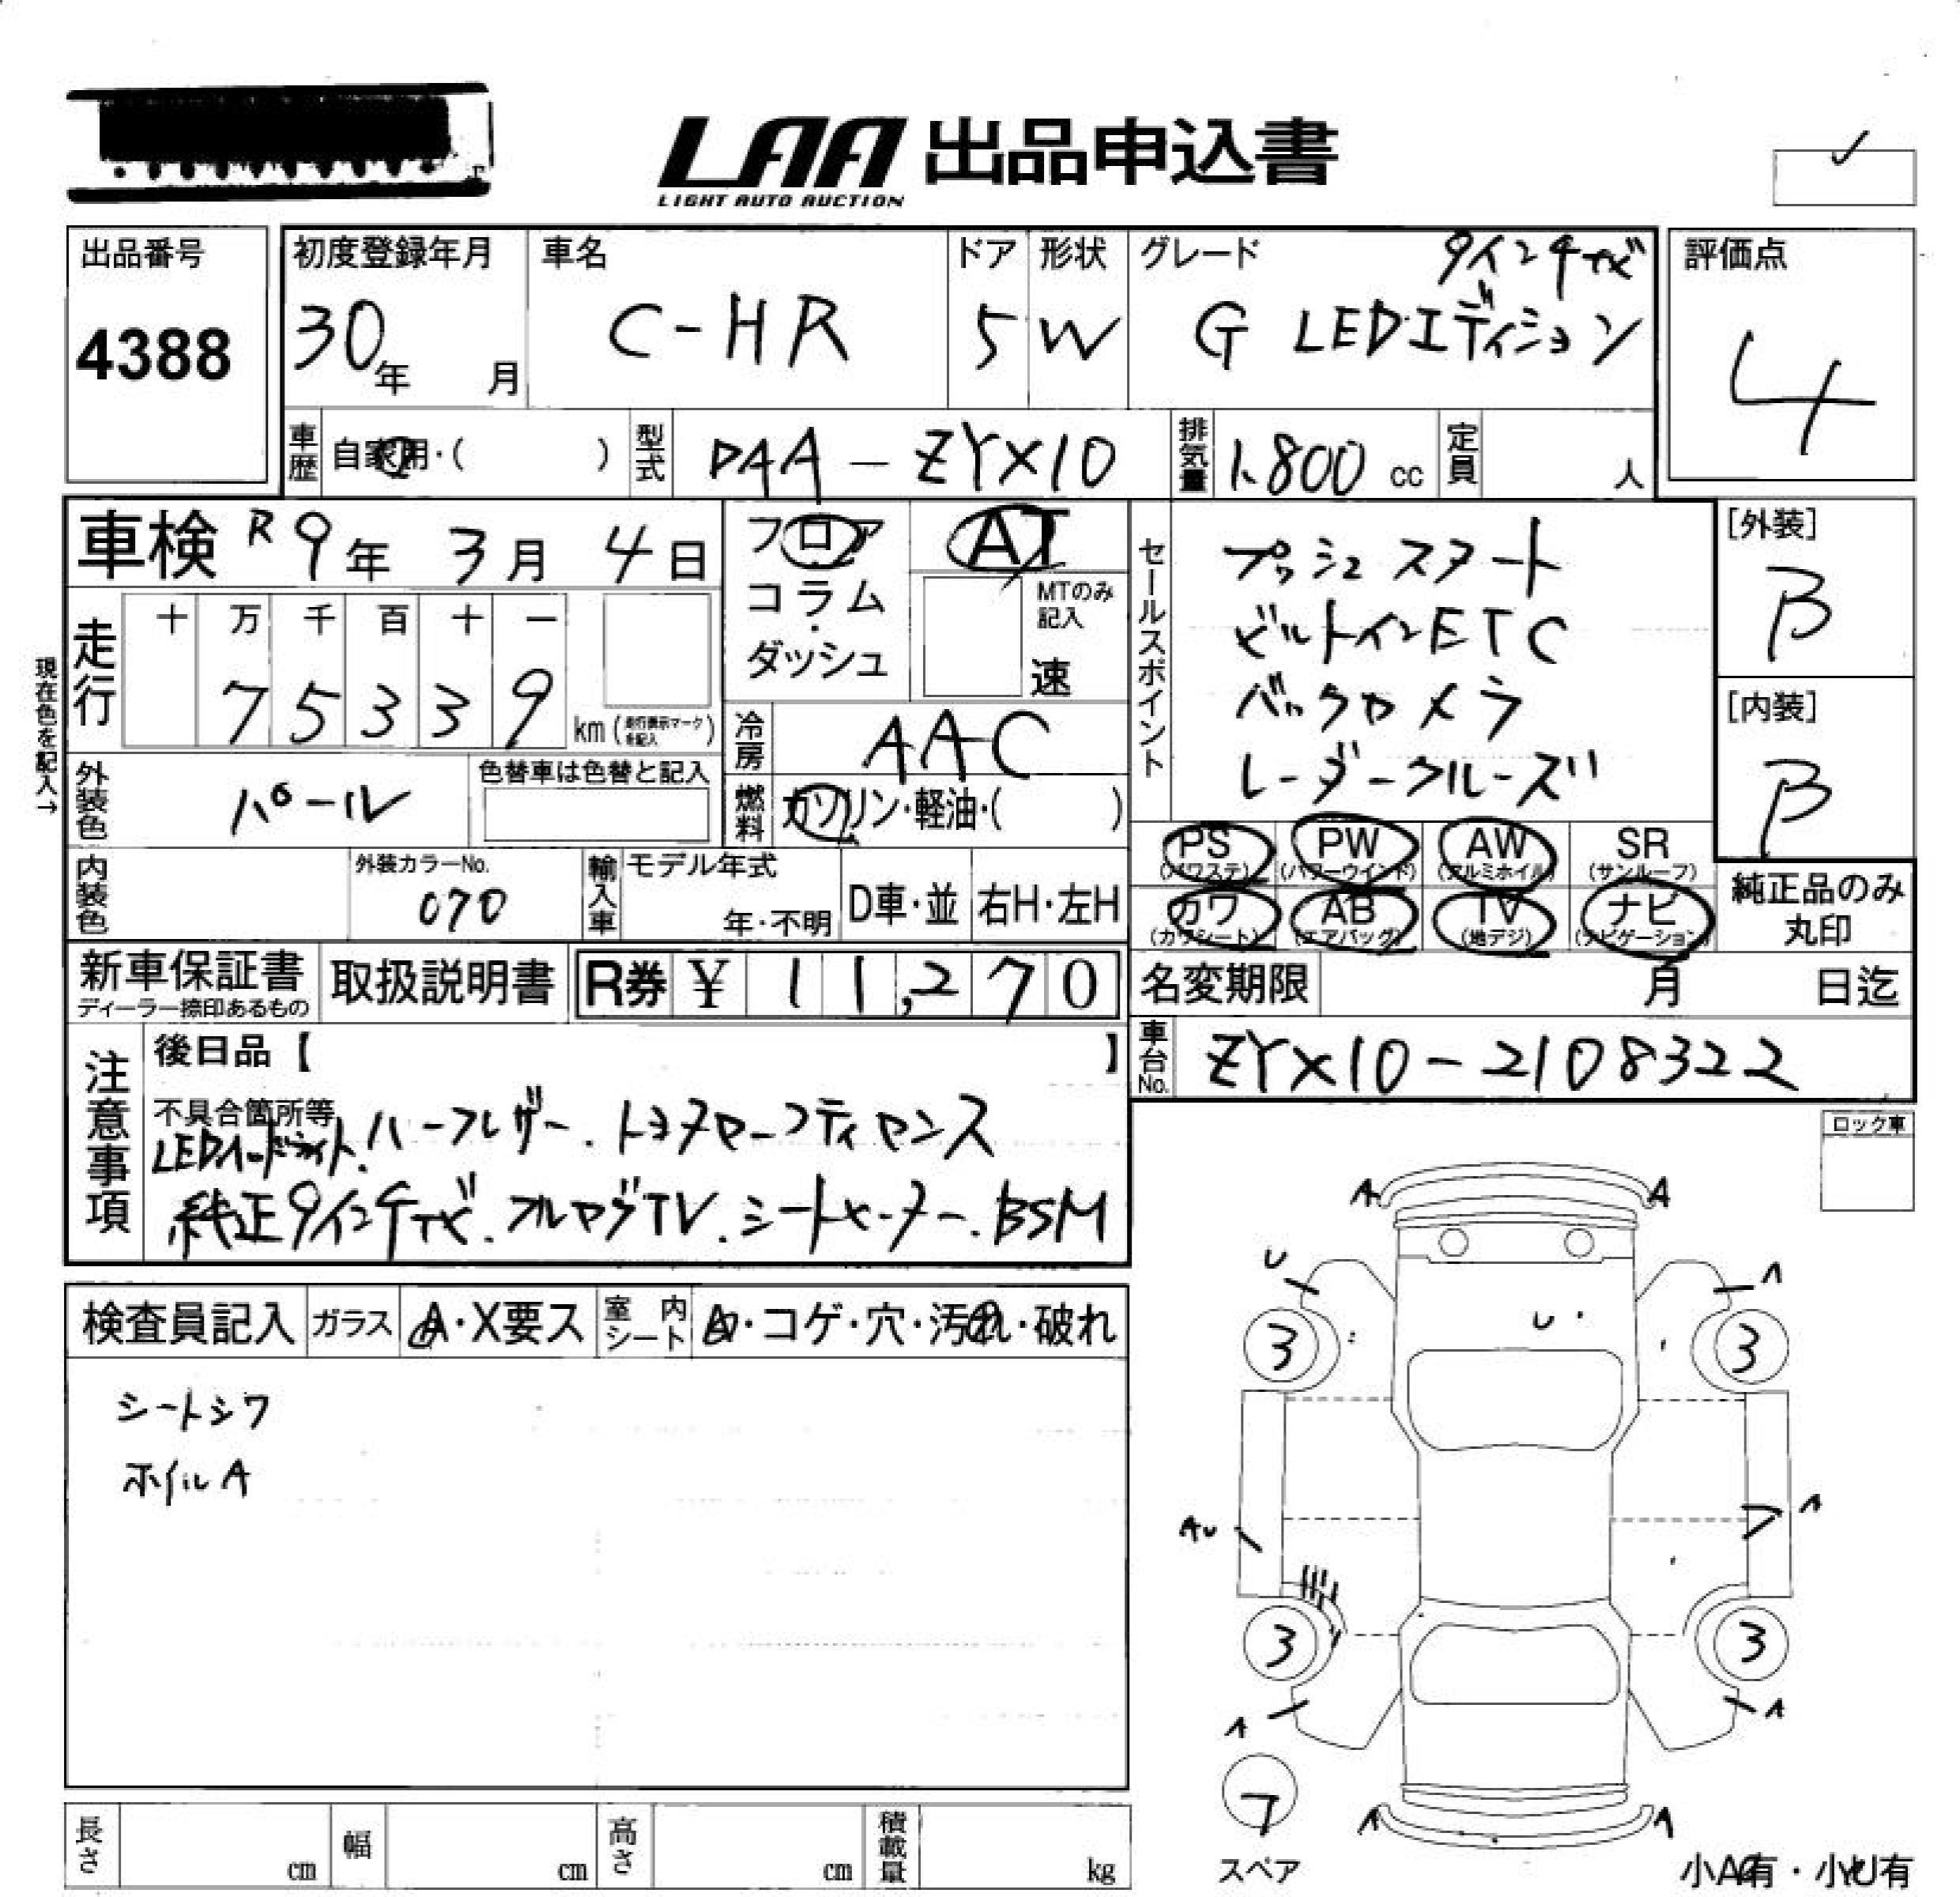 LAA 出品申込書
LIGHT AUTO AUCTION
出品番号
4388
初度登録年月
30年 月
車名
C-HR
ドア
5
形状
W
グレード
9インチナビ
G LEDエディション
評価点
4
車歴
自家用・( )
型式
DAA-ZYX10
排気量
1.800 cc
定員
人
車検 R9年 3月 4日
フロア
コラム
ダッシュ
AT
MTのみ記入
速
セールスポイント
プッシュスタート
ビルトインETC
バックカメラ
レーダークルーズ
[外装]
B
[内装]
B
現在色を記入→
走行
十 万 千 百 十 一
7 5 3 3 9
km(走行表示マークを記入)
冷房
AAC
外装色
パール
色替車は色替と記入
燃料
ガソリン・軽油・( )
内装色
外装カラーNo.
070
輸入車
モデル年式
年・不明
D車・並
右H・左H
PS (パワステ)
PW (パワーウインド)
AW (アルミホイル)
SR (サンルーフ)
カワ (カワシート)
AB (エアバッグ)
TV (地デジ)
ナビ (ナビゲーション)
純正品のみ
丸印
新車保証書
ディーラー捺印あるもの
取扱説明書
R券 ¥ 11,270
名変期限
月 日迄
車台No.
ZYX10-2108322
注意事項
後日品【 】
不具合箇所等
LEDヘッドライト.ハーフレザー.トヨタセーフティセンス
純正9インチナビ.フルセグTV.シートヒーター.BSM
ロック車
検査員記入
ガラス
A・X要ス
室内シート
・コゲ・穴・汚れ・破れ
シートシワ
ホイルA
A A
U A
U
3 3
AU A
3 3
A A
フ
スペア
A A
小A有・小U有
長さ
cm
幅
cm
高さ
cm
積載量
kg